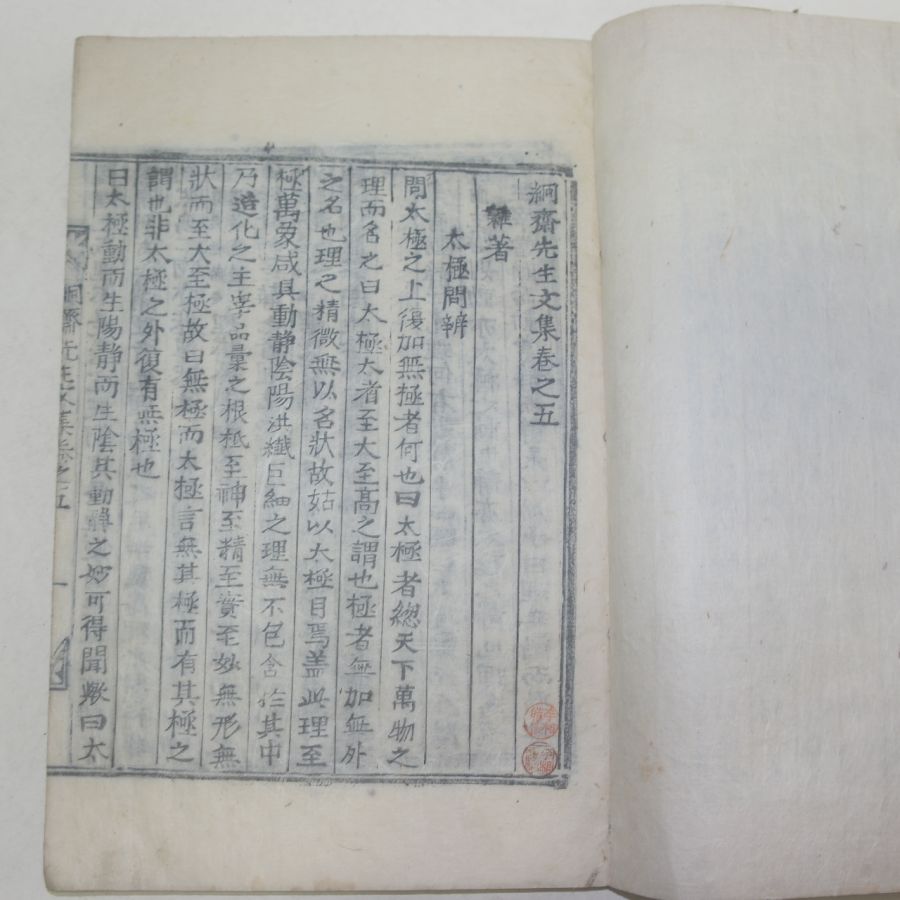 絅齋先生文集卷之五
雜著
太極問辨
問太極之上復加無極者何也曰太極者總天下萬物之
理而名之曰太極太者至大至高之謂也極者無加無外
之名也理之精微無以名狀故姑以太極目焉盖此理至
極萬象咸具動静陰陽洪纖巨細之理無不包含於其中
乃造化之主宰品彙之根柢至神至精至實至妙無形無
狀而至大至極故曰無極而太極言無其極而有其極之
謂也非太極之外復有無極也
曰太極動而生陽静而生陰其動静之妙可得聞歟曰太
絅齋先生文集卷之五 一